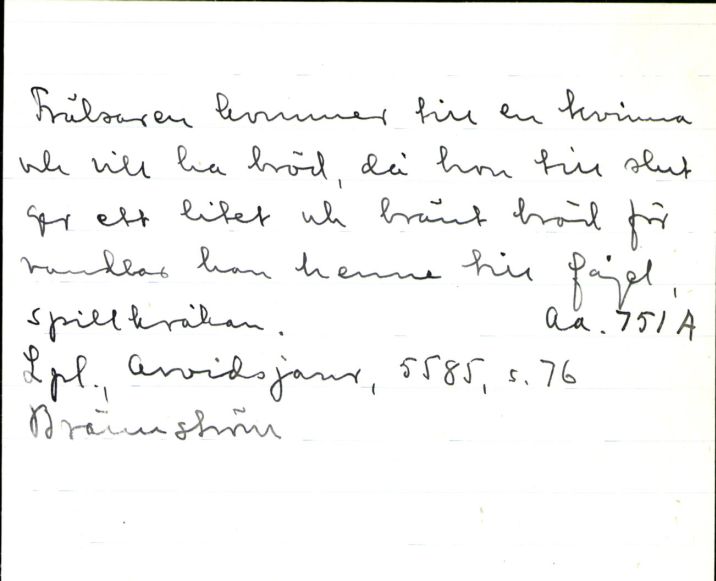 Frälsaren kommer till en kvinna
och vill ha bröd, då hon till slut
ger ett litet och bränt bröd för
vandlar han henne till fågel,
spillkråkan. Aa. 751 A
Lpl., Arvidsjaur, 5585, s. 76
Brännström